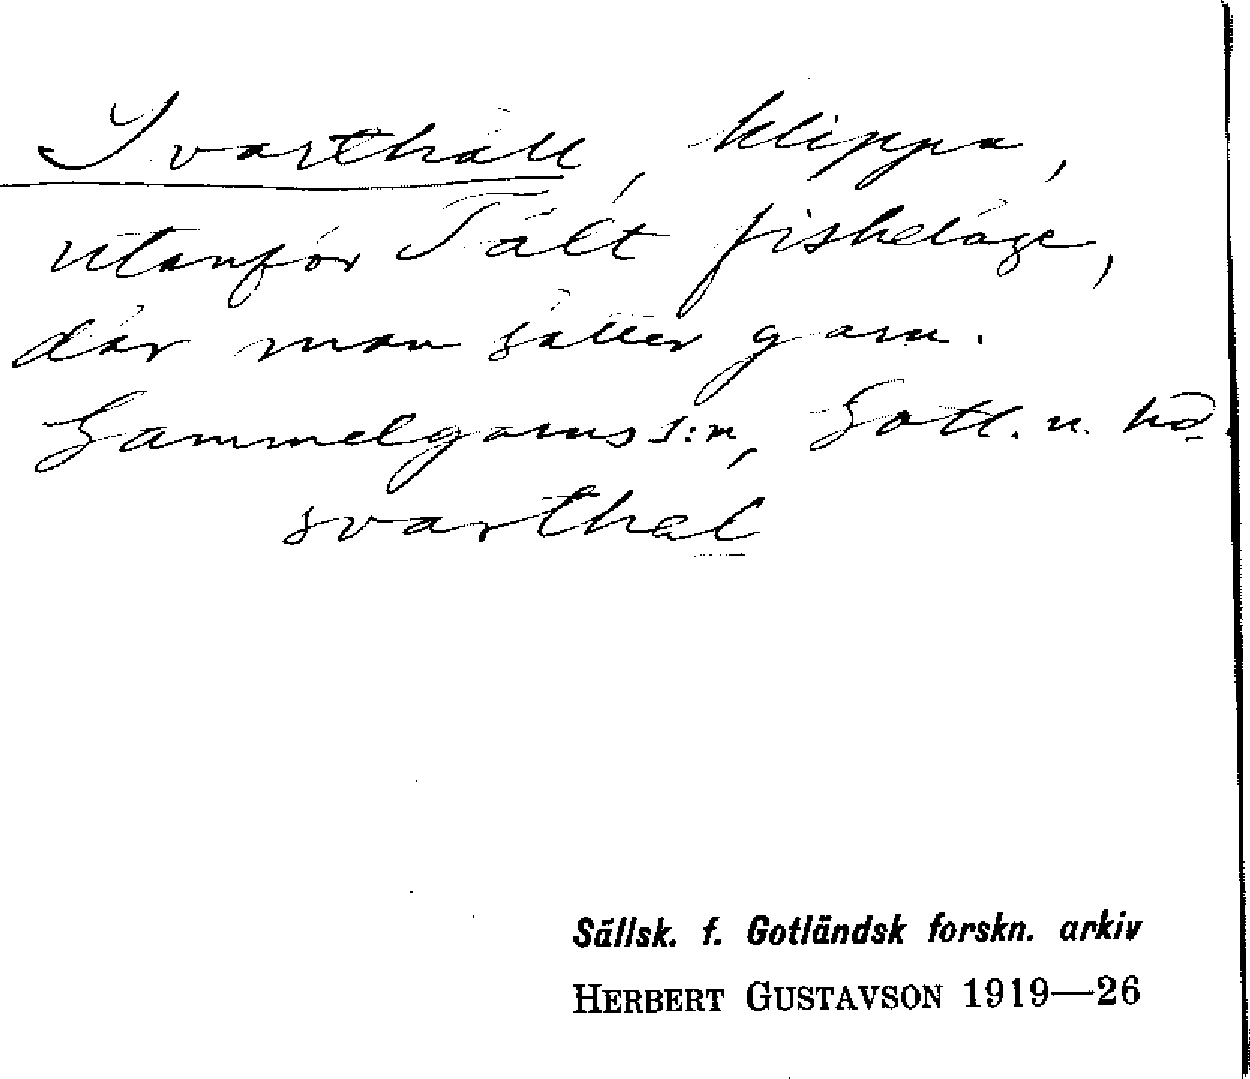 Svarthäll, klippa,
utanför Tält fiskeläge,
där man sätter garn.
Gammelgarns s:n, Gotl. n. hd.
svarthäl
Sällsk. f. Gotländsk forskn. arkiv
HERBERT GUSTAVSON 1919—26